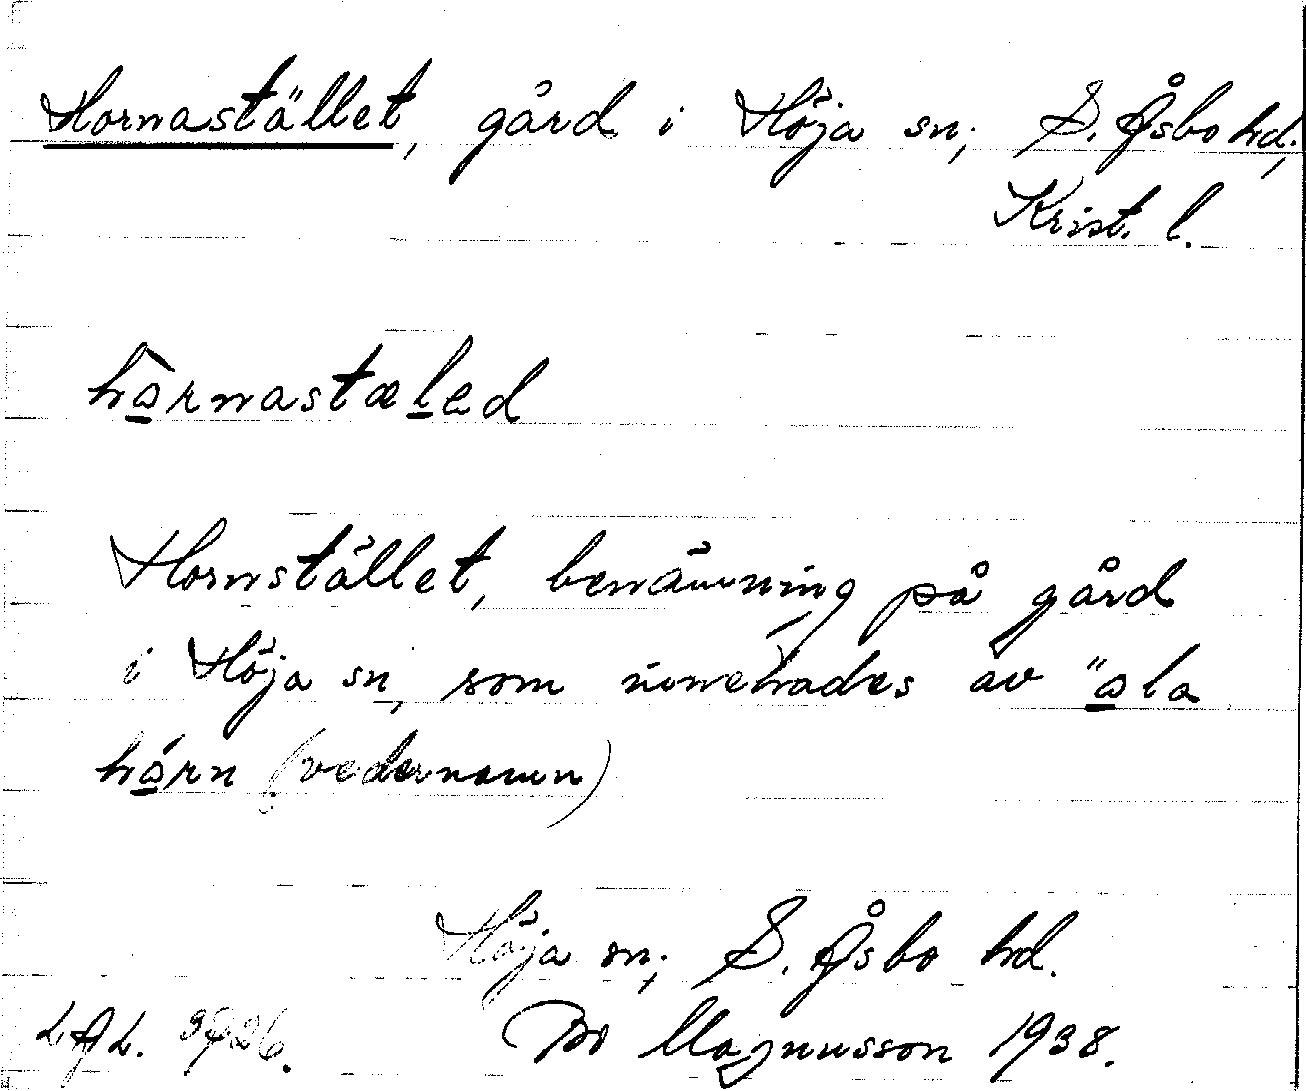 Hornastället, gård i Höja sn; S. Åsbo hd;
Krist. l.
hornastæled
Hornstället, benämning på gård
i Höja sn, som innehades av "ola
horn (vedernamn)
Höja sn; S. Åsbo hd.
LAL. 3926. Bo Magnusson 1938.